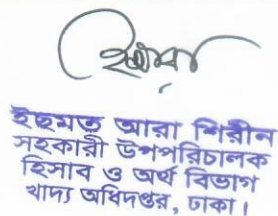 ইছমত আরা শিরীন
সহকারী উপপরিচালক
হিসাব ও অর্থ বিভাগ
খাদ্য অধিদপ্তর, ঢাকা।